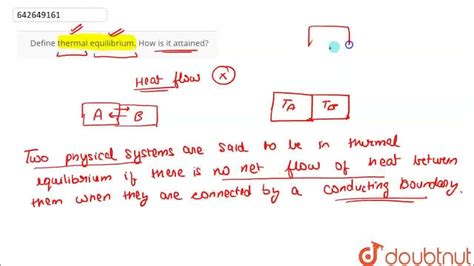 642649161
Define thermal equilibrium. How is it attained?
Heat flow X
A B
TA TB
Two physical systems are said to be in thermal
equilibrium if there is no net flow of heat between
them when they are connected by a conducting boundary.
doubtnut